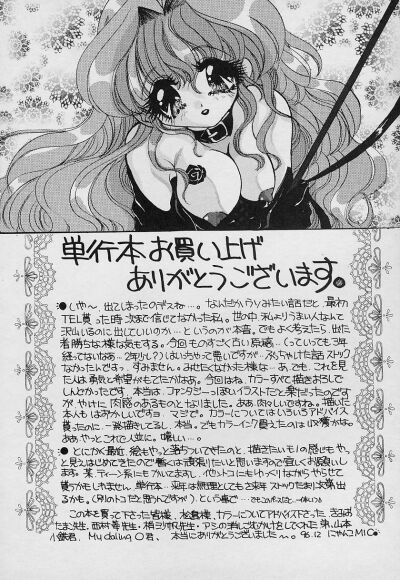 単行本お買い上げ
ありがとうございます。
●しや〜、出てしまったのデスね…。なんだかウソみたい話だと、最初
TEL貰った時、次まで信じてなかった私。世の中、私よりうまい人なんて
沢山いるのに出していいのか…というのが本音。でもよく考えたら、出た
者勝ちな様な気もする。今回ものすごく古い原稿(っていっても3年
経ってないなぁ…2年位?)はいっちゃって悪いですが、
なかったんでまっ、すみません。みせたくなかった様な…あ、でも、これを見
た人は勇気と希望がもてたかなぁ。今回はね、カラーすべて描きおろしで
しんどかったです。本当は、ファンタジーっぽいイラストだと楽だったのです
がやけに肉感のあるものとなりました。ああ、肉々しいですね。描いた
本人もはずかしいですヨ マジで。カラーについてはいろいろアドバイス
貰ったのに一般描きしてるし、本当。でもカラーインク買えたのは収穫かな。
ああ、やっとこれで人並に。嬉しい…。
●とにかく最近、絵もやっと落ちついてきたのと、描きたいモノの感じもやっ
と見えはじめてきたので暫くは頑張りたいと思いますので宜しくお願いし
ます。某、ティーン系にもかいてますし、ペンネコにもゆっくりながらやらせて
貰うかもしれません。単行本…来年は無理としても再来年ストックたまり次第出
るかも。(別のトコだと思うトですが)という事で…
この本を買って下さった皆様、松倉様、カラーについてアドバイス下さった、きみお
たまこ先生・西村幸先生・梶ヶ帆先生・アシの時にごむかけをしてくれた弟、山本
小鉄君、My daling O君、本当にありがとうございました〜。96.12 にゃんこMIC